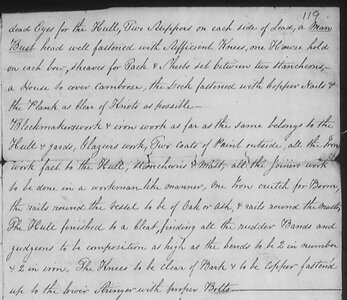 119
dead Eyes for the Hull, Two Scuppers on each side of Lead, a Man
Bust head well fastened with sufficient Knees, one Hawse hold
on each bow, sheaves for Tack & Sheets set between two stancheons,
a House to cover camboose, the Deck fastened with Copper Nails &
the Plank as Clear of Knots as possible
Blockmakerswork & iron work as far as the same belongs to the
Hull & yards, Plaziers work, Two Coats of Paint outside, all the Iron
work fast to the Hull, stancheons & Mast, all the joiners work
to be done in a workman like manner, One Iron crutch for Boom,
the rails round the vessel to be of Oak or Ash, & rails round the Masts,
The Hull finished to a Cleat, finding all the rudder Bands and
gudgeons to be composition as high as the bends to be 2 in number
& 2 in iron. The Knees to be clear of Bark & to be Copper fasten'd
up to the lower Stringer with proper Bolts